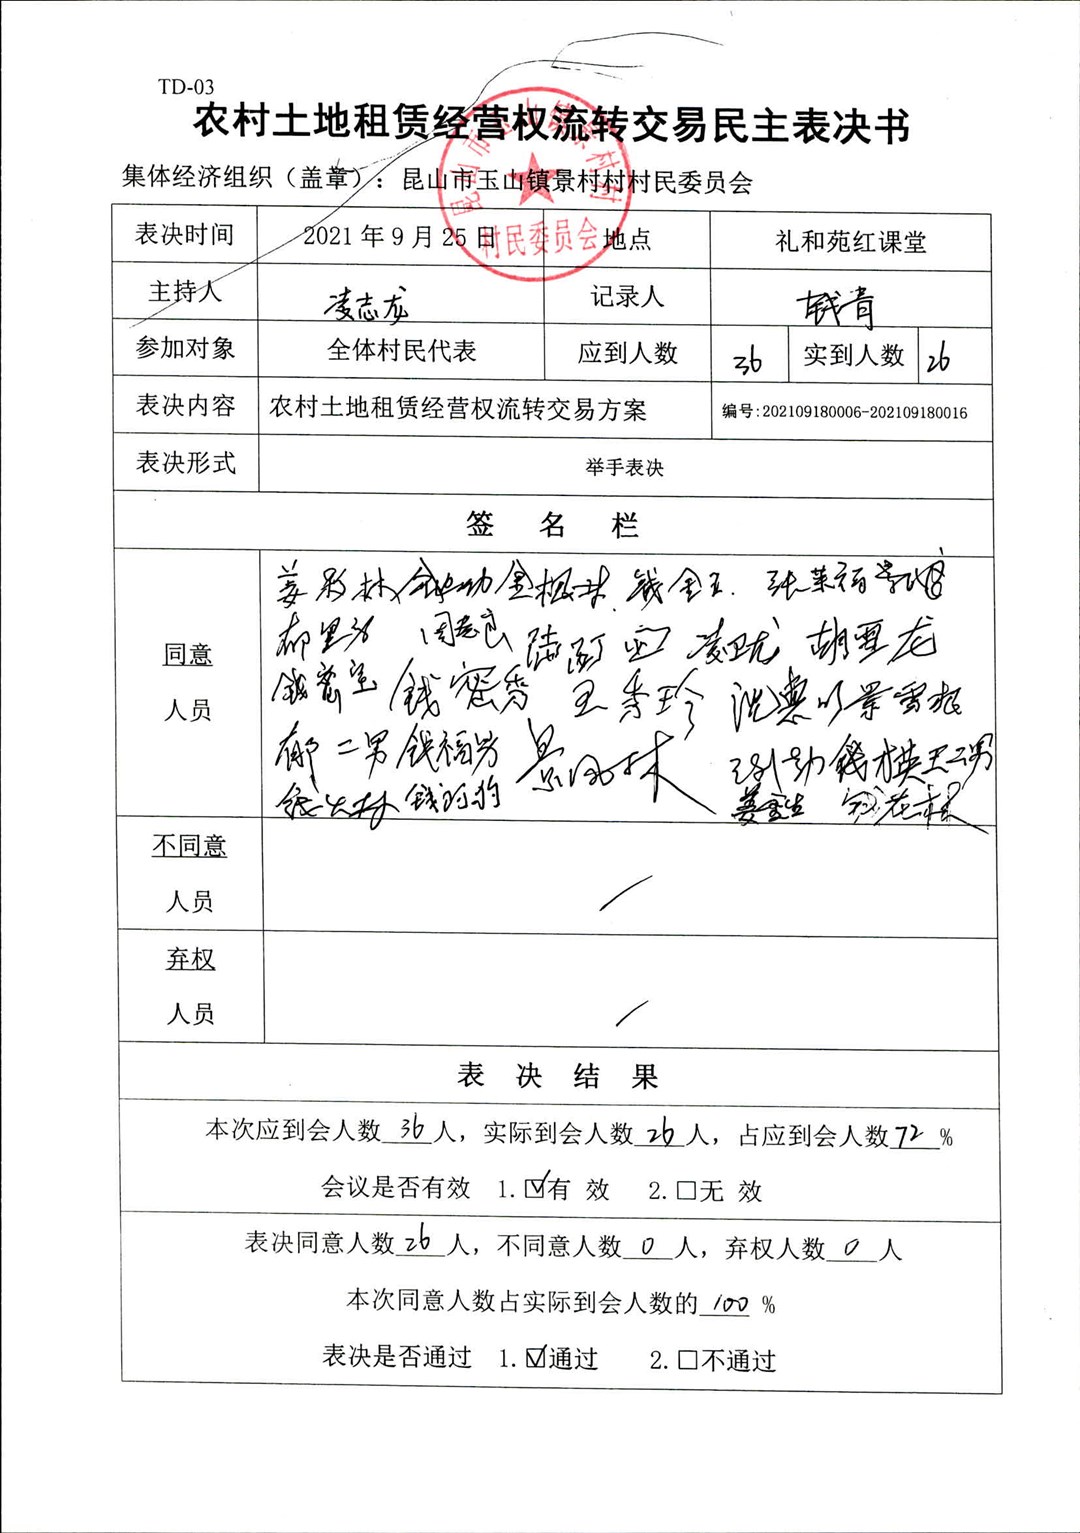 TD-03
农村土地租赁经营权流转交易民主表决书
集体经济组织（盖章）：昆山市玉山镇景村村村民委员会
表决时间 2021年9月25日 地点 礼和苑红课堂
主持人 凌志龙 记录人 钱青
参加对象 全体村民代表 应到人数 36 实到人数 26
表决内容 农村土地租赁经营权流转交易方案 编号:202109180006-202109180016
表决形式 举手表决
签 名 栏
金根林 钱金五 张荣福
凌卫龙 胡雪龙
同意
钱密香 王秀珍 沈惠明 景雪根
人员
郁二男 钱福男 景凤林 王二男
不同意
人员
弃权
人员
表 决 结 果
本次应到会人数36人，实际到会人数26人，占应到会人数72%
会议是否有效 1.☑有 效 2.□无 效
表决同意人数26人，不同意人数0人，弃权人数0人
本次同意人数占实际到会人数的100%
表决是否通过 1.☑通过 2.□不通过